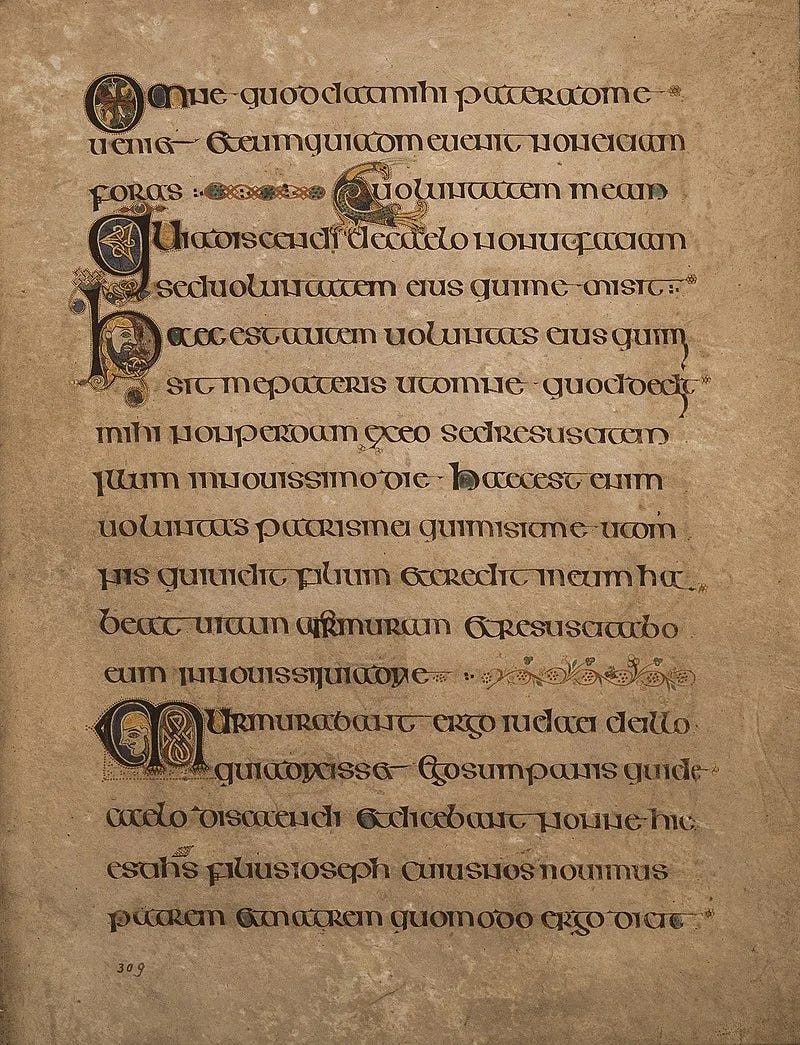 Omne quod dat mihi pater ad me
ueniet Et eum qui ad me uenit non eiciam
foras uoluntatem meam
Quia discendi de caelo non ut faciam
sed uoluntatem eius qui me misit
haec est autem uoluntas eius qui mi
sit me pateris ut omne quod dedit
mihi non perdam ex eo sed resuscitem
illum in nouissimo die haec est enim
uoluntas patris mei qui misit me ut om
nis qui uidit filium et credit in eum ha
beat uitam et resuscitabo
eum in
Murmurabant ergo iudaei de illo
quia Ego sum panis qui de
caelo discendi et dicebant nonne hic
est ihs filius ioseph cuius nos nouimus
patrem et matrem quomodo ergo dicit
309